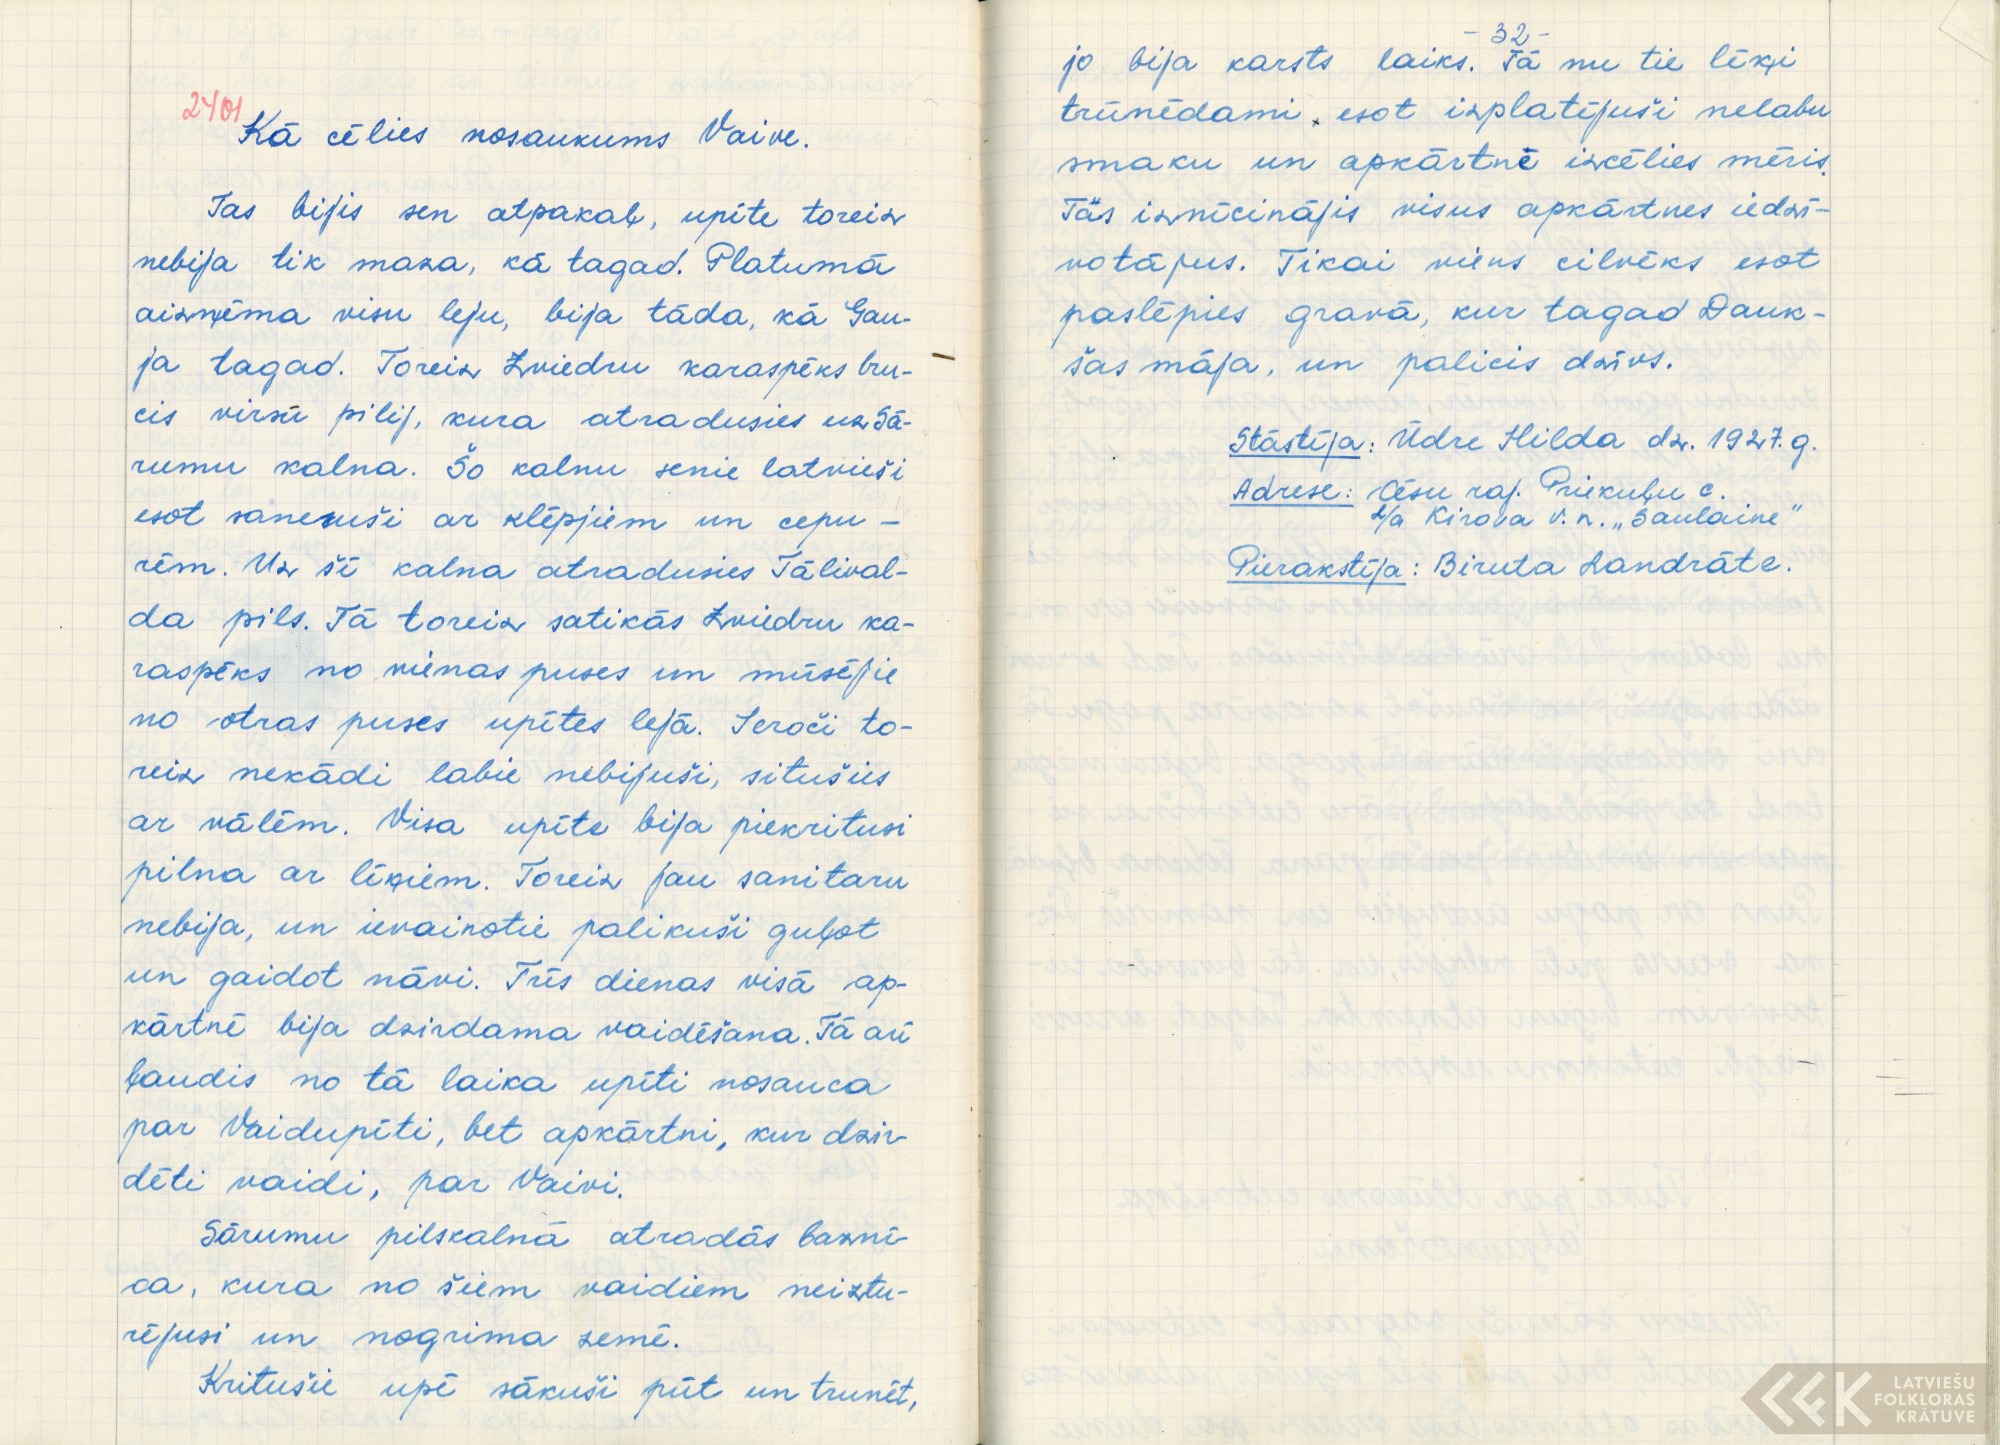 2401
Kā cēlies nosaukums Vaive.
Tas bijis sen atpakaļ, upīte toreiz
nebija tik maza, kā tagad. Platumā
aizņēma visu leju, bija tāda, kā Gau-
ja tagad. Toreiz Zviedru karaspēks bru-
cis virsū pilij, kura atradusies uz Sā-
rumu kalna. Šo kalnu senie latvieši
esot sanesuši ar klēpjiem un cepu-
rēm. Uz šī kalna atradusies Tālival-
da pils. Tā toreiz satikās Zviedru ka-
raspēks no vienas puses un mūsējie
no otras puses upītes lejā. Ieroči to-
reiz nekādi labie nebijuši, situšies
ar vālēm. Visa upīte bija piekritusi
pilna ar līķiem. Toreiz jau sanitaru
nebija, un ievainotie palikuši guļot
un gaidot nāvi. Trīs dienas visā ap-
kārtnē bija dzirdama vaidēšana. Tā arī
ļaudis no tā laika upīti nosauca
par Vaidupīti, bet apkārtni, kur dzir-
dēti vaidi, par Vaivi.
Sārumu pilskalnā atradās baznī-
ca, kura no šiem vaidiem neiztu-
rējusi un nogrima zemē.
Kritušie upē sākuši pūt un trunēt,
-32-
jo bija karsts laiks. Tā nu tie līķi
trūnēdami esot izplatījuši nelabu
smaku un apkārtnē izcēlies mēris.
Tas iznīcinājis visus apkārtnes iedzī-
votājus. Tikai viens cilvēks esot
paslēpies gravā, kur tagad Dauk-
šas māja, un palicis dzīvs.
Stāstīja: Ūdre Hilda dz. 1927. g.
Adrese: Cēsu raj. Priekuļu c.
L/a Kirova v. n. „Saulaine"
Pierakstīja: Biruta Landrāte.
LATVIEŠU
FOLKLORAS
KRĀTUVE